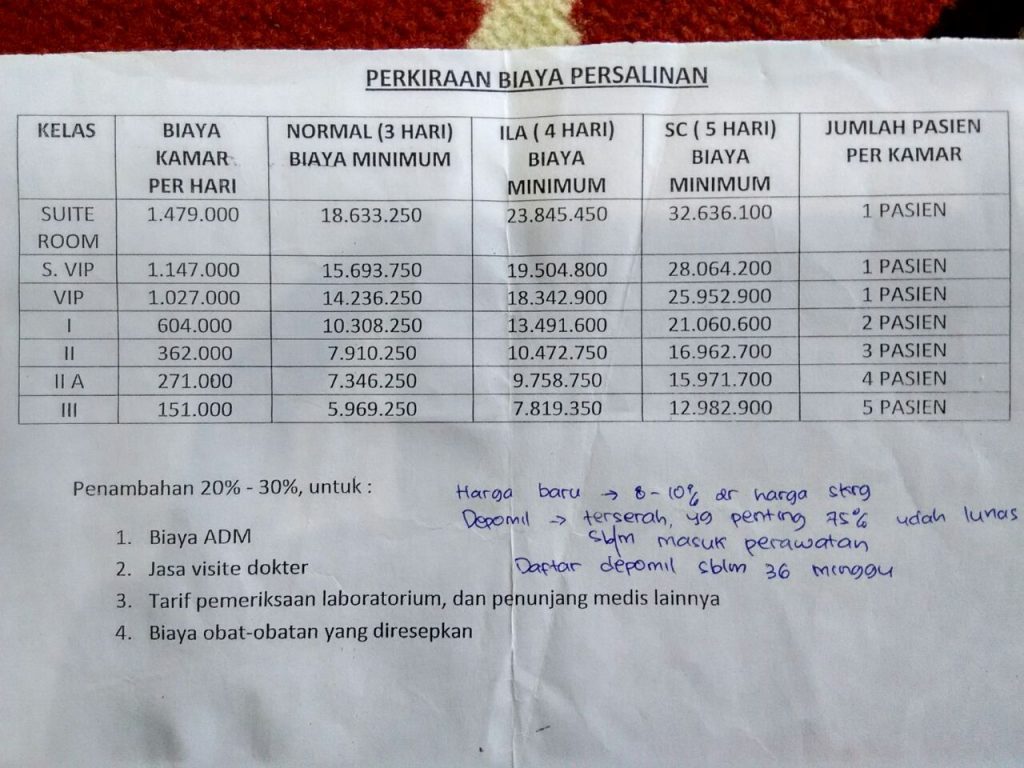 PERKIRAAN BIAYA PERSALINAN
KELAS BIAYA KAMAR PER HARI NORMAL (3 HARI) BIAYA MINIMUM ILA ( 4 HARI) BIAYA MINIMUM SC ( 5 HARI) BIAYA MINIMUM JUMLAH PASIEN PER KAMAR
SUITE ROOM 1.479.000 18.633.250 23.845.450 32.636.100 1 PASIEN
S. VIP 1.147.000 15.693.750 19.504.800 28.064.200 1 PASIEN
VIP 1.027.000 14.236.250 18.342.900 25.952.900 1 PASIEN
I 604.000 10.308.250 13.491.600 21.060.600 2 PASIEN
II 362.000 7.910.250 10.472.750 16.962.700 3 PASIEN
II A 271.000 7.346.250 9.758.750 15.971.700 4 PASIEN
III 151.000 5.969.250 7.819.350 12.982.900 5 PASIEN
Penambahan 20% - 30%, untuk :
1. Biaya ADM
2. Jasa visite dokter
3. Tarif pemeriksaan laboratorium, dan penunjang medis lainnya
4. Biaya obat-obatan yang diresepkan
Harga baru → 8-10% dr harga skrg
Depomil → terserah, yg penting 75% udah lunas
sblm masuk perawatan
Daftar depomil sblm 36 minggu